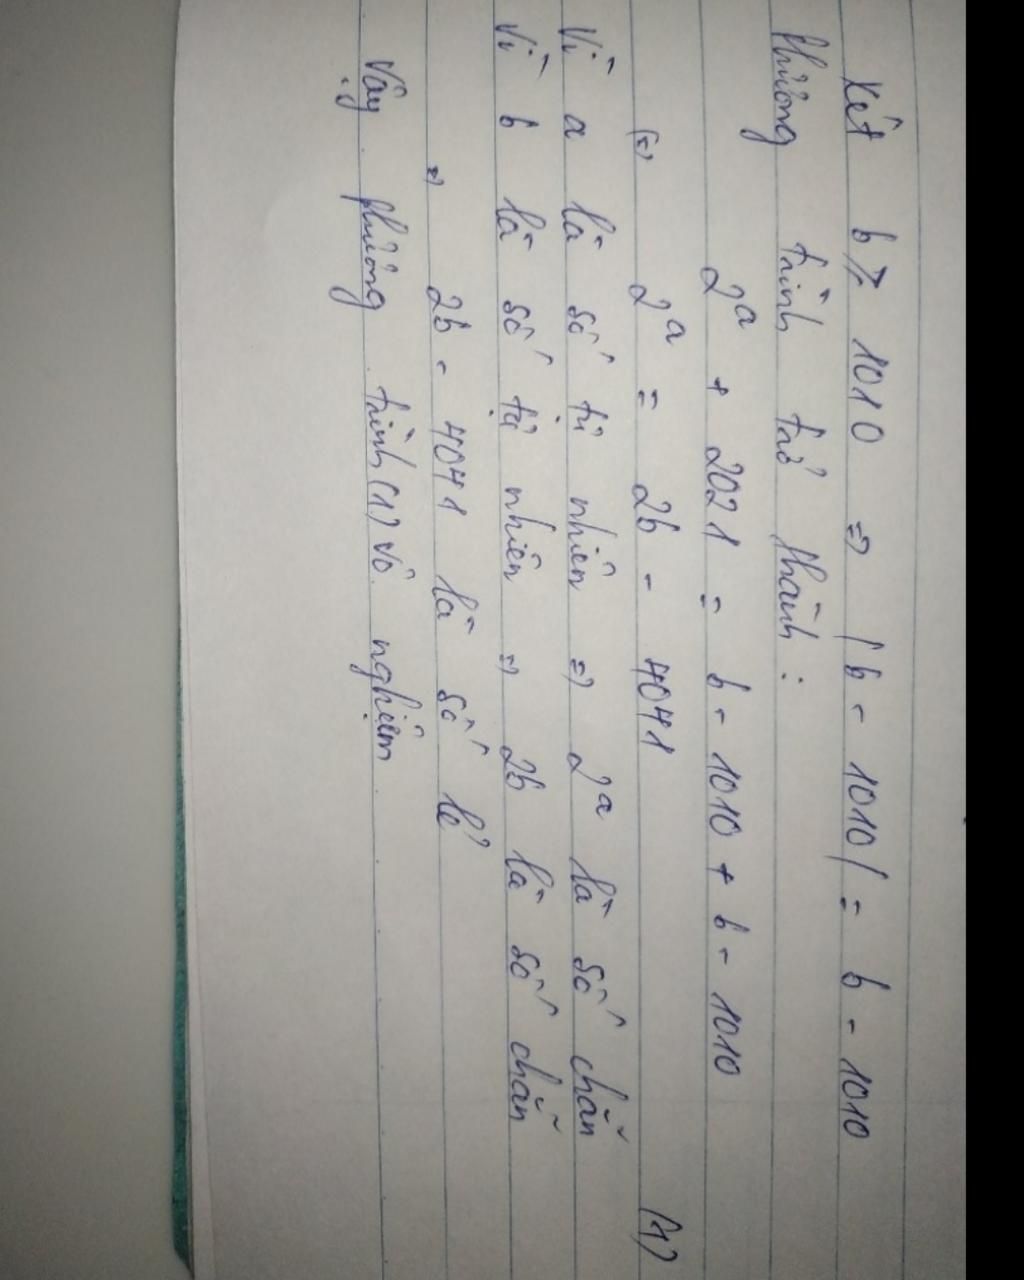 Xét b ≥ 1010 => |b - 1010| = b - 1010
Phương trình trở thành :
2ᵃ + 2021 = b - 1010 + b - 1010
(=) 2ᵃ = 2b - 4041 (1)
Vì a là số tự nhiên => 2ᵃ là số chẵn
Vì b là số tự nhiên => 2b là số chẵn
=> 2b - 4041 là số lẻ
Vậy phương trình (1) vô nghiệm